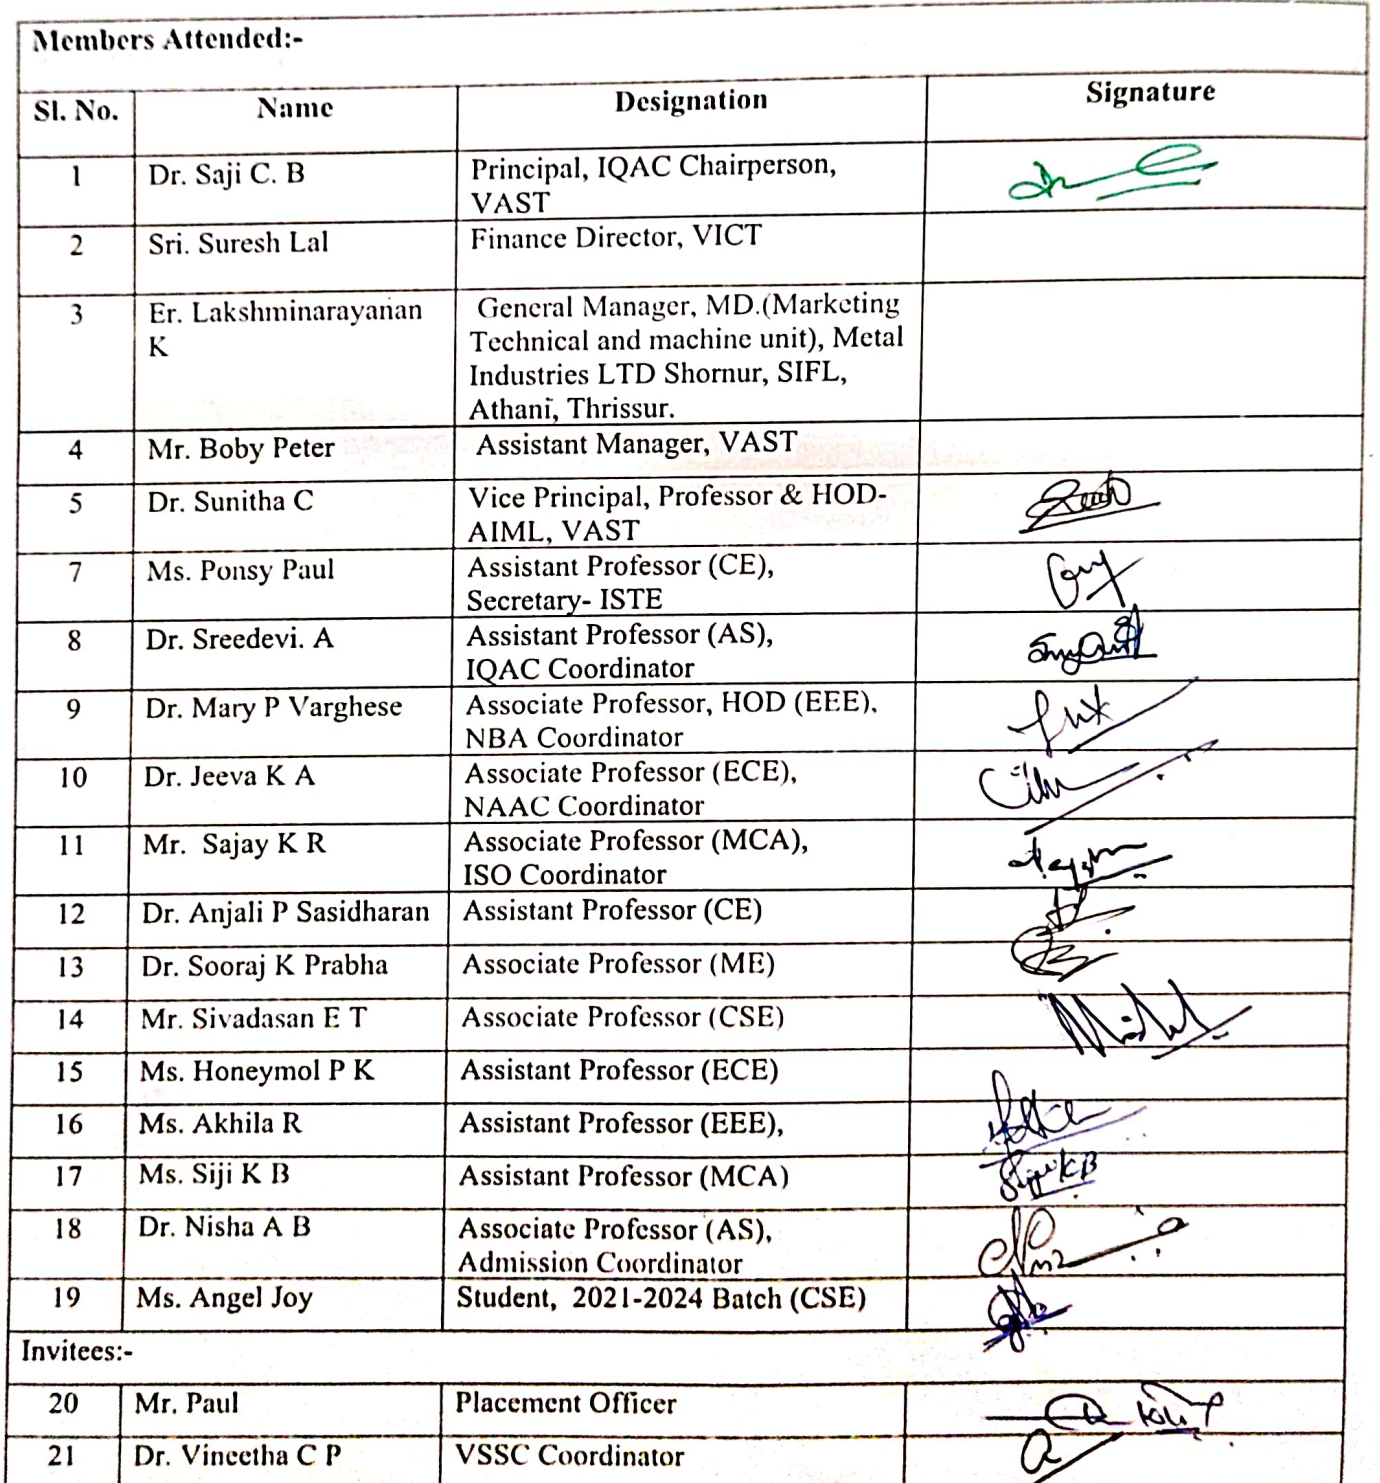 Members Attended:-
Sl. No. Name Designation Signature
1 Dr. Saji C. B Principal, IQAC Chairperson,
VAST
2 Sri. Suresh Lal Finance Director, VICT
3 Er. Lakshminarayanan General Manager, MD.(Marketing
K Technical and machine unit), Metal
Industries LTD Shornur, SIFL,
Athani, Thrissur.
4 Mr. Boby Peter Assistant Manager, VAST
5 Dr. Sunitha C Vice Principal, Professor & HOD-
AIML, VAST
7 Ms. Ponsy Paul Assistant Professor (CE),
Secretary- ISTE
8 Dr. Sreedevi. A Assistant Professor (AS),
IQAC Coordinator
9 Dr. Mary P Varghese Associate Professor, HOD (EEE),
NBA Coordinator
10 Dr. Jeeva K A Associate Professor (ECE),
NAAC Coordinator
11 Mr. Sajay K R Associate Professor (MCA),
ISO Coordinator
12 Dr. Anjali P Sasidharan Assistant Professor (CE)
13 Dr. Sooraj K Prabha Associate Professor (ME)
14 Mr. Sivadasan E T Associate Professor (CSE)
15 Ms. Honeymol P K Assistant Professor (ECE)
16 Ms. Akhila R Assistant Professor (EEE),
17 Ms. Siji K B Assistant Professor (MCA) Siji K B
18 Dr. Nisha A B Associate Professor (AS),
Admission Coordinator
19 Ms. Angel Joy Student, 2021-2024 Batch (CSE)
Invitees:-
20 Mr. Paul Placement Officer
21 Dr. Vineetha C P VSSC Coordinator